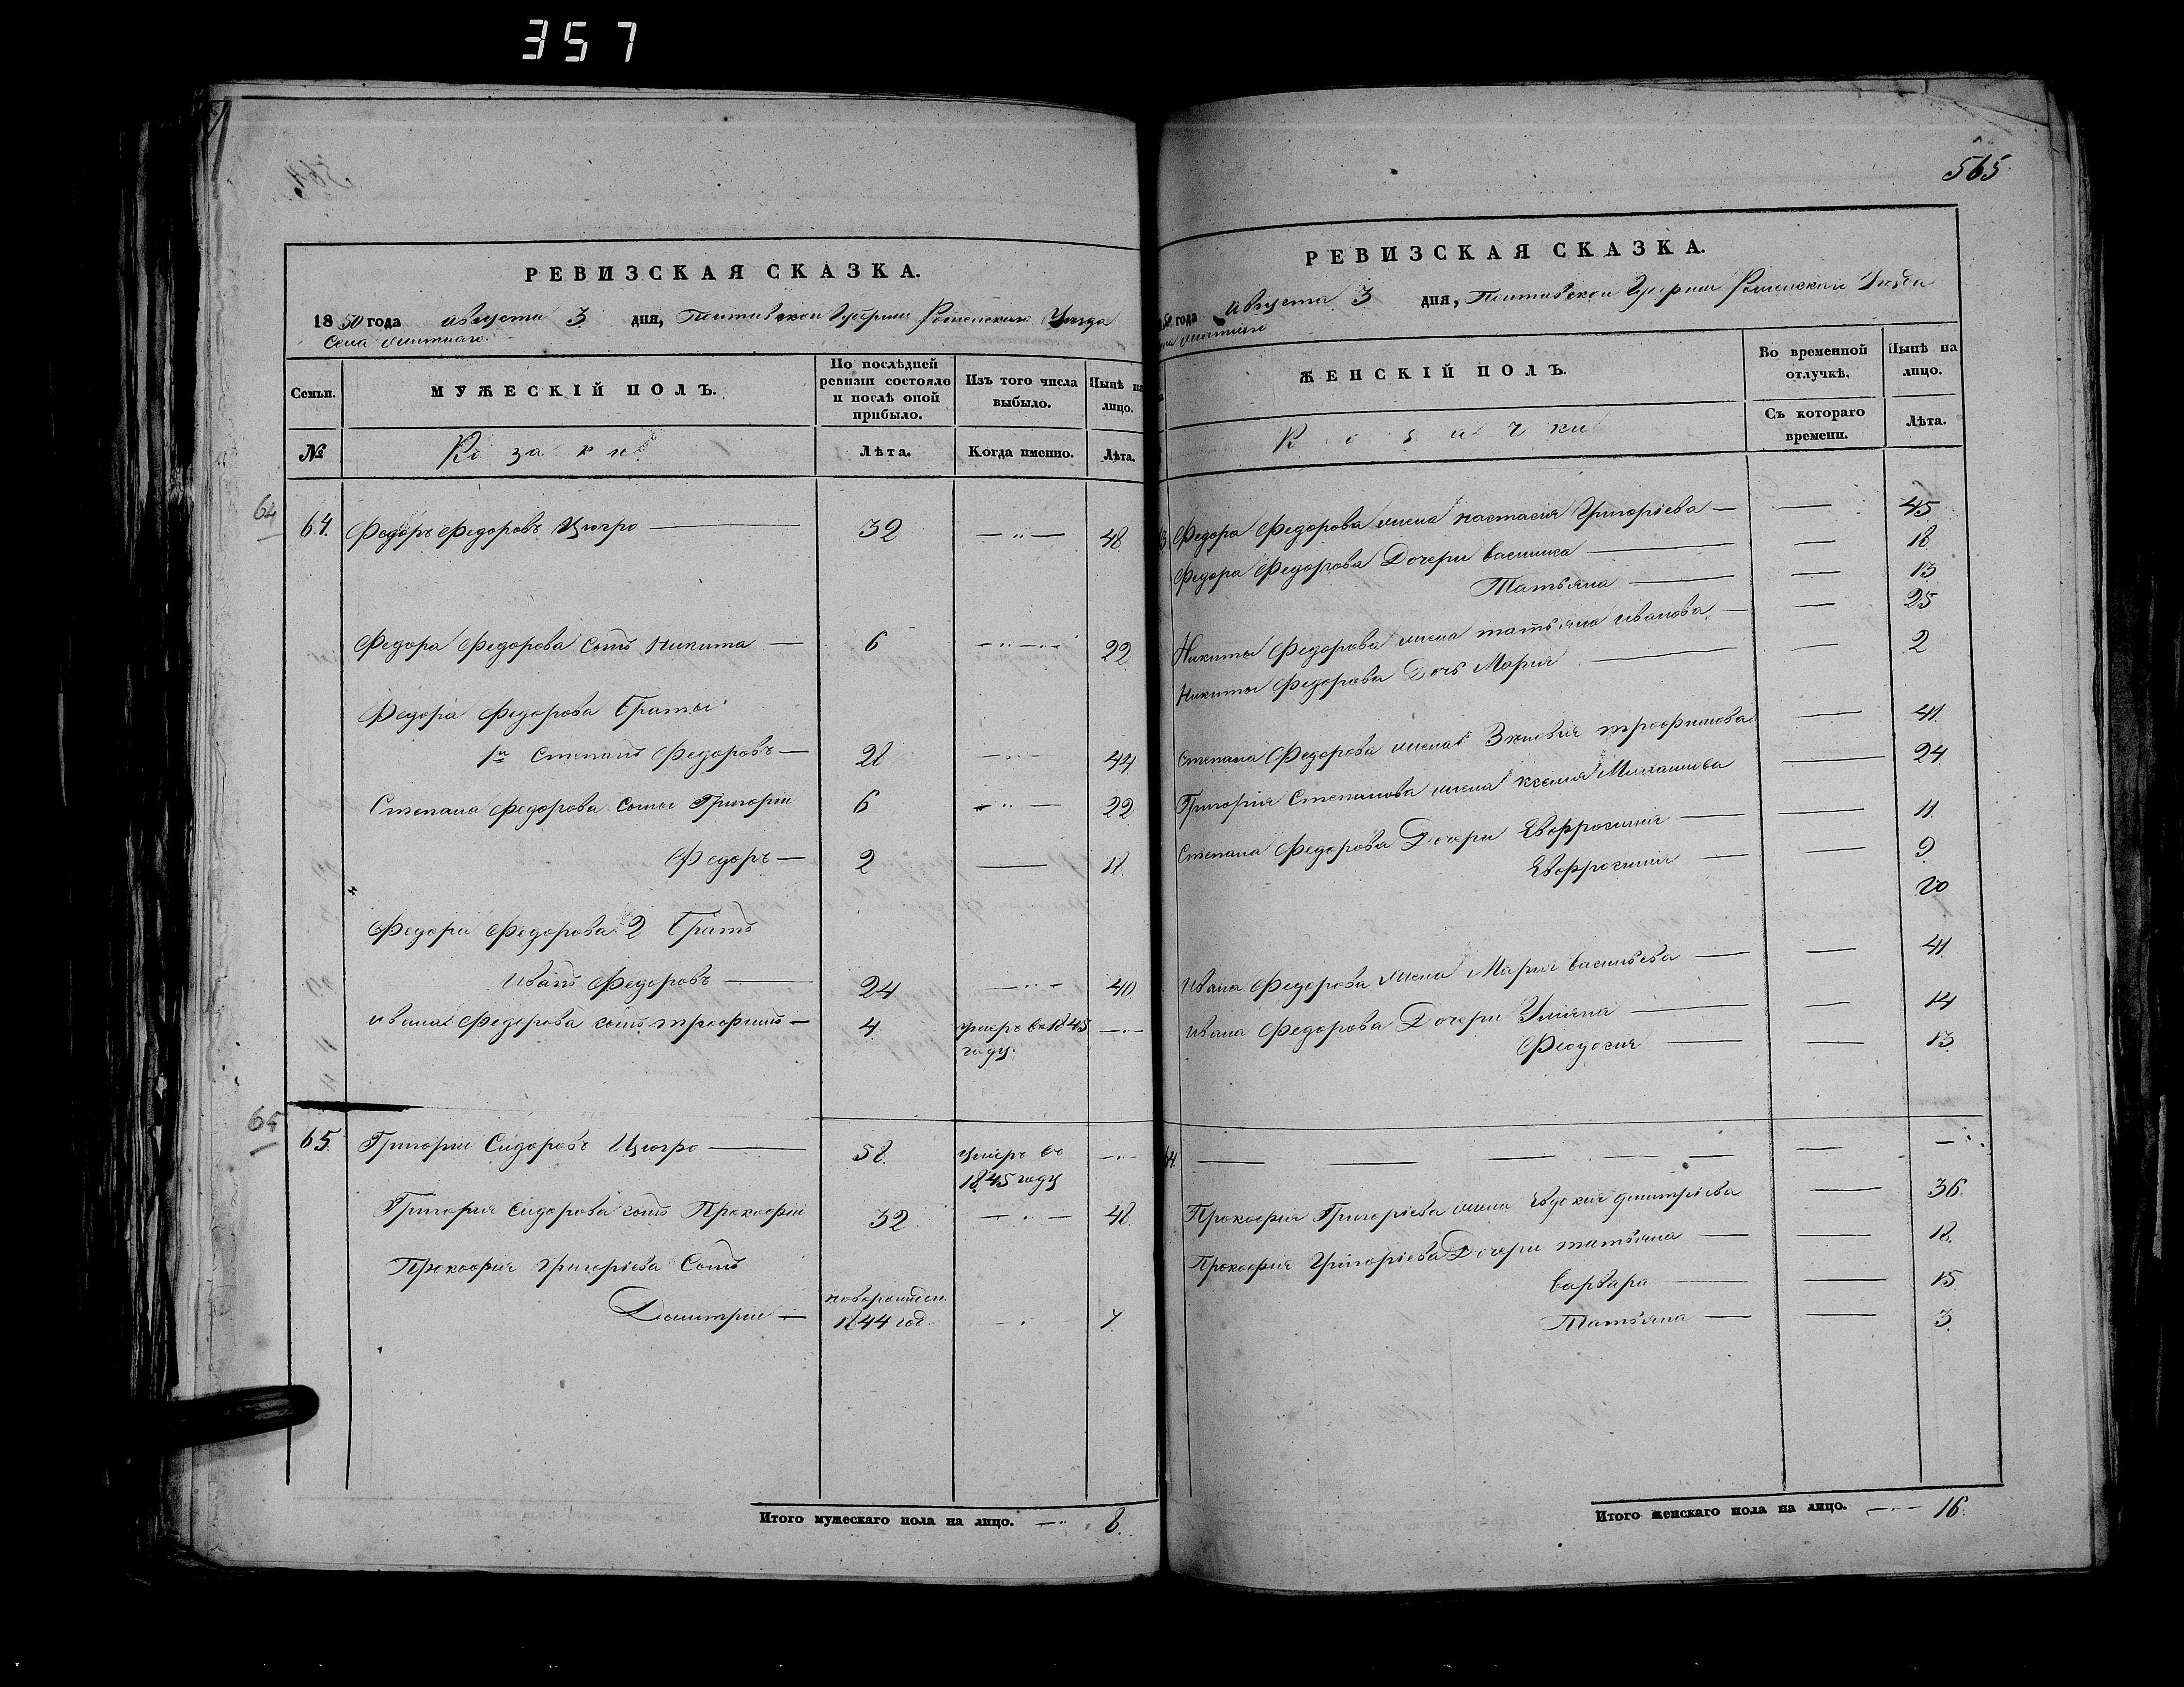 357
РЕВИЗСКАЯ СКАЗКА.
1850 года августа 3 дня, Полтавской Губернии Роменскаго Уезда
Села
Семьи. МУЖЕСКІЙ ПОЛЪ. По послѣдней ревизіи состояло и послѣ оной прибыло. Изъ того числа выбыло. Нынѣ на лицо.
№ Козаки Лѣта. Когда именно. Лѣта.
64
64. Федоръ Федоровъ Цюгро — 32 — 48
Федора Федорова сынъ Никита — 6 — 22
Федора Федорова Браты
1й Степанъ Федоровъ — 28 — 44
Степана Федорова сыны Григорій 6 — 22
Федоръ — 2 — 18.
Федора Федорова 2 Братъ
Иванъ Федоровъ — 24 — 40
Ивана Федорова сынъ Трофимъ — 4 умеръ въ 1845 году. —
65
65. Григорій Сидоровъ Цюгро — 58. умеръ въ 1845 году —
Григорія Сидорова сынъ Прокофій 32 — 48.
Прокофія Григоріева Сынъ
Дмитрій — новорожден. 1844 год. — 7.
Итого мужескаго пола на лицо. — 8.
565
РЕВИЗСКАЯ СКАЗКА.
года Августа 3 дня, Полтавской Губерніи Роменскаго Уезда
ЖЕНСКІЙ ПОЛЪ. Во временной отлучкѣ. Нынѣ на лицо.
Козачки Съ котораго времени. Лѣта.
Федора Федорова жена Настасія Григоріева — 45
Федора Федорова Дочери Василиса — 18
Татьяна — 13
Никиты Федорова жена Татьяна Иванова — 25
Никиты Федорова Дочь Марія — 2
Степана Федорова жена Зиновія Трофимова — 41.
Григорія Степанова жена Ксенія Михайлова — 24.
Степана Федорова Дочери Евфросинія — 11.
Евфросинія — 9
20
Ивана Федорова жена Марія Васильева — 41.
Ивана Федорова Дочери Уліяна — 14
Феодосія — 13.
64. — — — — — — —
Прокофія Григоріева жена Евдокія Дмитріева — 36.
Прокофія Григоріева Дочери Татьяна — 18.
Варвара — 15.
Татьяна — 3.
Итого женскаго пола на лицо. — 16.